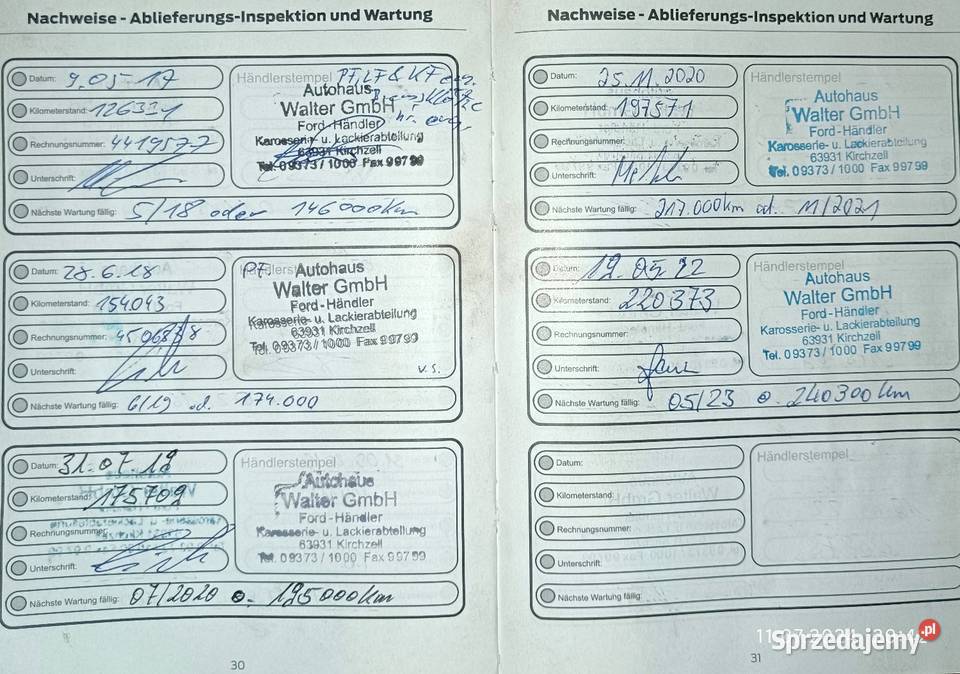 Nachweise - Ablieferungs-Inspektion und Wartung
Datum: 9.05-17
Kilometerstand: 126331
Rechnungsnummer: 4419577
Unterschrift:
Nächste Wartung fällig: 5/18 oder 146000Km
Händlerstempel PF, LF & KF
Autohaus
Walter GmbH
Ford-Händler
Karosserie- u. Lackierabteilung
63931 Kirchzell
Tel. 09373/1000 Fax 99799
Datum: 28.6.18
Kilometerstand: 154043
Rechnungsnummer:
Unterschrift:
Nächste Wartung fällig: 6/19 od. 174.000
PF.
Autohaus
Walter GmbH
Ford-Händler
Karosserie- u. Lackierabteilung
63931 Kirchzell
Tel. 09373/1000 Fax 99799
v.s.
Datum: 31.07.19
Kilometerstand: 175709
Rechnungsnummer:
Unterschrift:
Nächste Wartung fällig: 07/2020 o. 195000Km
Händlerstempel
Autohaus
Walter GmbH
Ford-Händler
Karosserie- u. Lackierabteilung
63931 Kirchzell
Tel. 09373/1000 Fax 99799
30
Nachweise - Ablieferungs-Inspektion und Wartung
Datum: 25.11.2020
Kilometerstand: 197571
Rechnungsnummer:
Unterschrift:
Nächste Wartung fällig: 217.000km od. 11/2021
Händlerstempel
Autohaus
Walter GmbH
Ford-Händler
Karosserie- u. Lackierabteilung
63931 Kirchzell
Tel. 09373/1000 Fax 99799
Datum: 12.05.22
Kilometerstand: 220373
Rechnungsnummer:
Unterschrift:
Nächste Wartung fällig: 05/23 o. 240300 km
Händlerstempel
Autohaus
Walter GmbH
Ford-Händler
Karosserie- u. Lackierabteilung
63931 Kirchzell
Tel. 09373/1000 Fax 99799
Datum:
Kilometerstand:
Rechnungsnummer:
Unterschrift:
Nächste Wartung fällig:
Händlerstempel
Sprzedajemy.pl
31